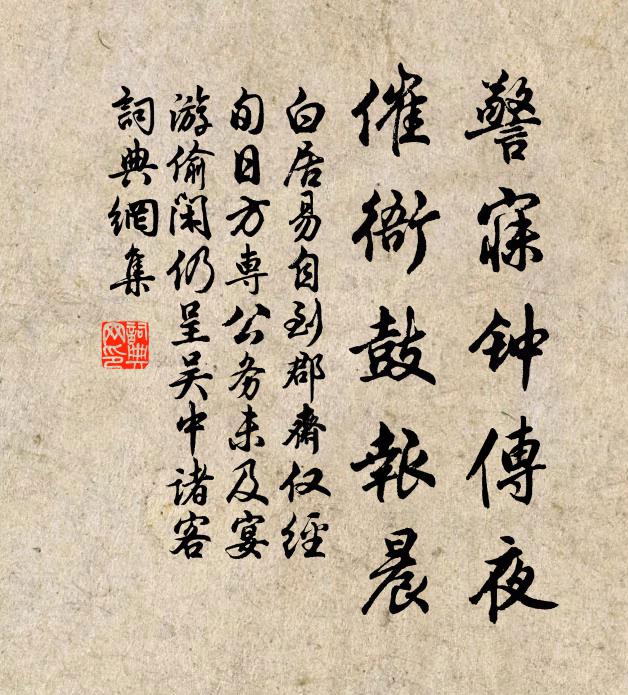 警寐钟傳夜
催衙鼓報晨
白居易自到郡齋仅經
旬日方専公务未及宴
游偷闲仍呈吴中诸客
詞典網集